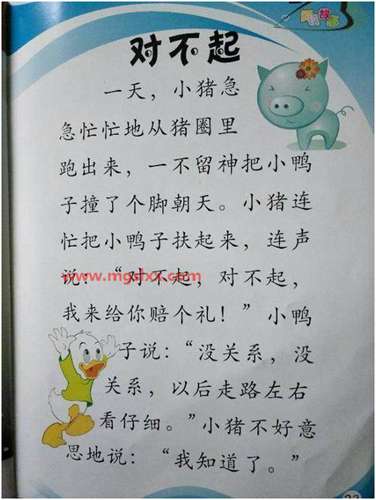 对不起
一天，小猪急
急忙忙地从猪圈里
跑出来，一不留神把小鸭
子撞了个脚朝天。小猪连
忙把小鸭子扶起来，连声
说：“对不起，对不起，
我来给你赔个礼！”小鸭
子说：“没关系，没
关系，以后走路左右
看仔细。”小猪不好意
思地说：“我知道了。”